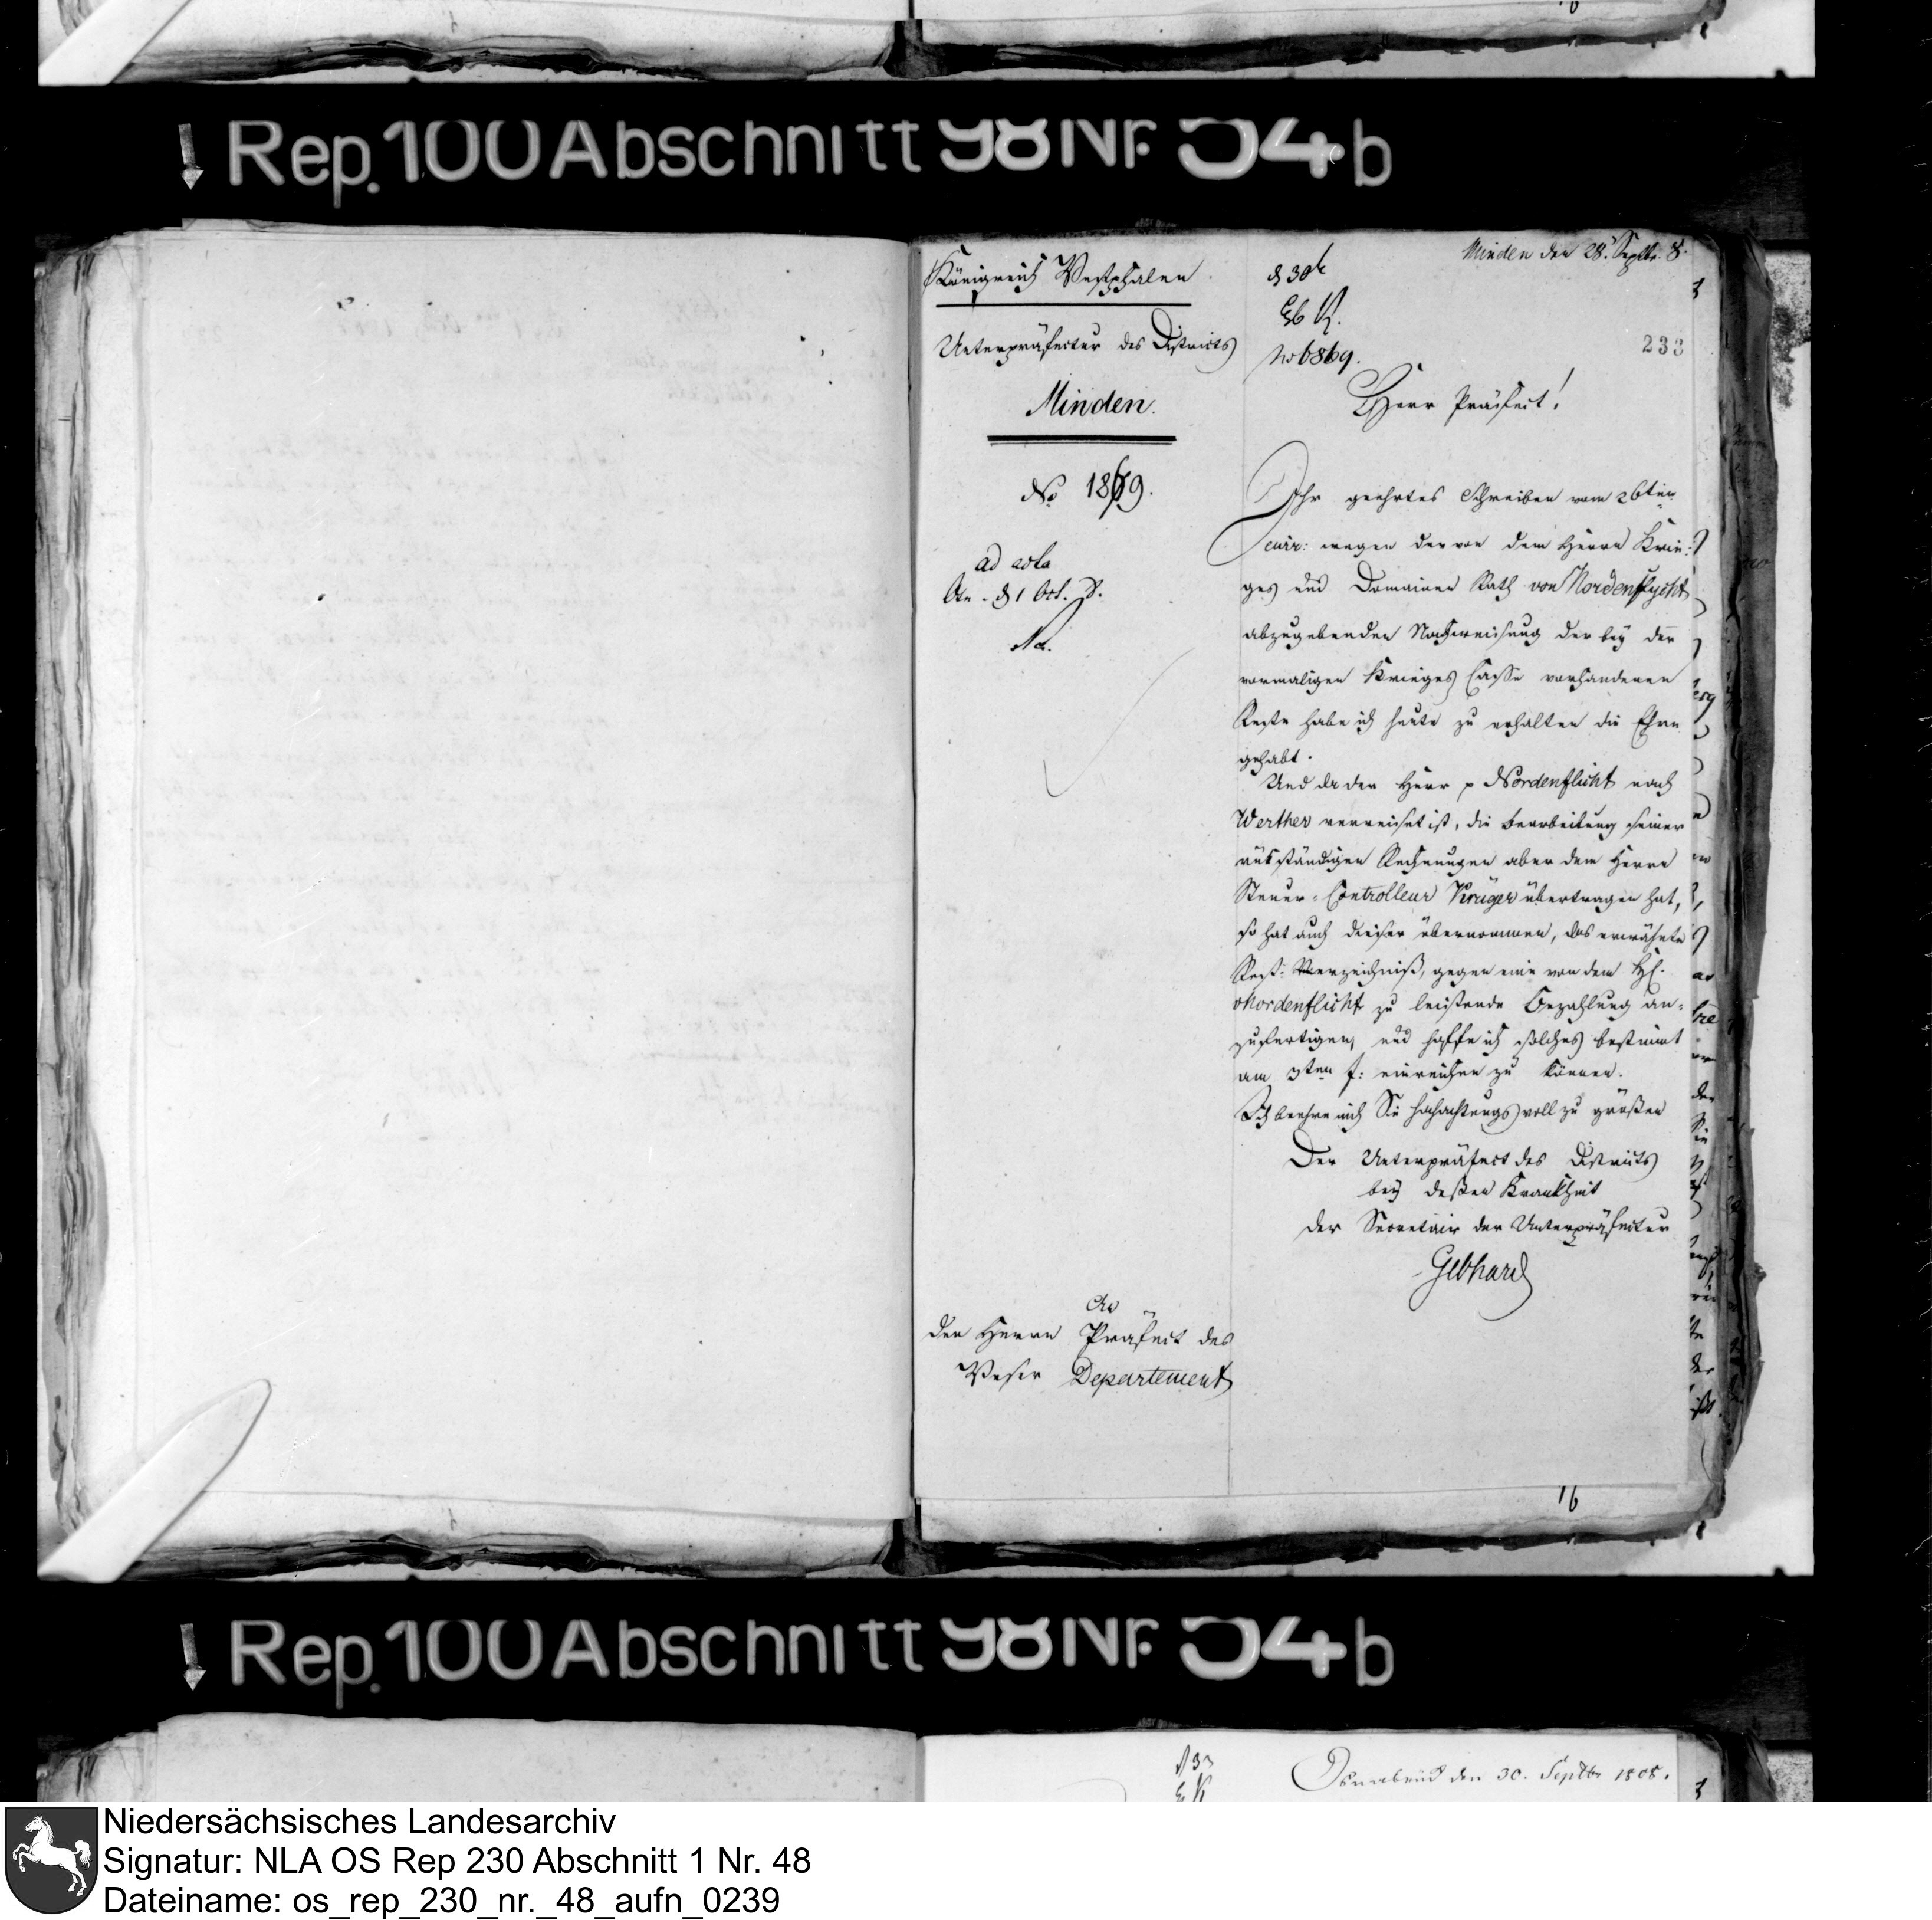 Rep. 100 Abschnitt 98 Nr. 54 b
Königreich Westphalen.
Unterpräfectur des Districts
Minden.
No 1869.
ad acta
Osn. d 1 Oct. 8.
Minden den 28. Septbr. 8.
d 30t
No 6869.
233
Herr Präfect!
Ihr geehrtes Schreiben vom 26ten
curr: wegen der von dem Herrn Krie-
ges und Domainen Rath von Nordenflycht
abzugebenden Nachweisung der bey der
vormaligen Krieges Casse vorhandenen
Reste habe ich heute zu erhalten die Ehre
gehabt.
Und da der Herr p Nordenflicht nach
Werther verreiset ist, die Bearbeitung seiner
rükständigen Rechnungen aber dem Herrn
Steuer-Controlleur Krüger übertragen hat,
so hat auch dieser übernommen, das erwähnte
Rest-Verzeichniß, gegen eine von dem H.
v Nordenflicht zu leistende Bezahlung an-
zufertigen, und hoffe ich solches bestimt
am 3ten f: einreichen zu können.
Ich beehre mich Sie hochachtungsvoll zu grüßen
Der Unterpräfect des Districts
bey deßen Krankheit
der Secretair der Unterpräfectur
Gebhard
An
den Herrn Präfect des
Weser Departement
16
Rep. 100 Abschnitt 98 Nr. 54 b
Osnabrück den 30. Septbr 1808.
Niedersächsisches Landesarchiv
Signatur: NLA OS Rep 230 Abschnitt 1 Nr. 48
Dateiname: os_rep_230_nr._48_aufn_0239